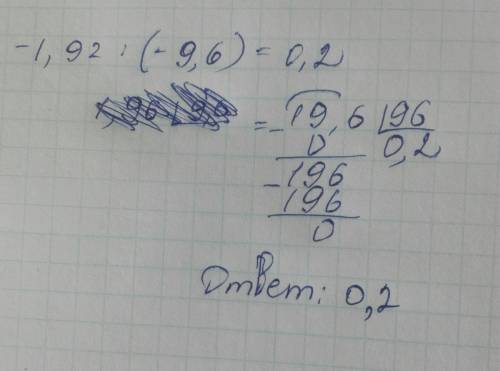 -1,92 : (-9,6) = 0,2
= -19,6 | 96
0 0,2
-196
196
0
Ответ: 0,2